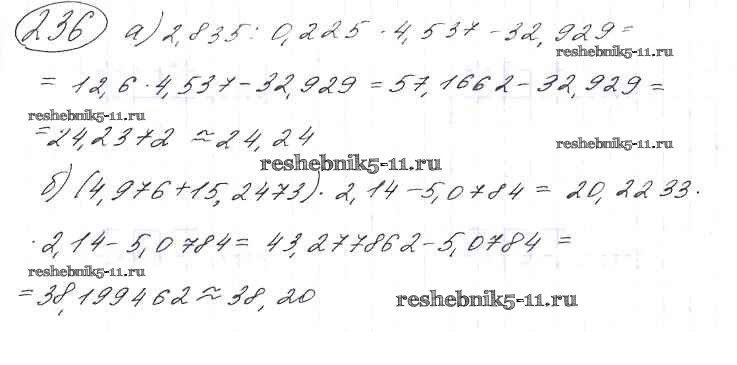 236 а) 2,835 : 0,225 · 4,537 - 32,929 =
reshebnik5-11.ru
= 12,6 · 4,537 - 32,929 = 57,1662 - 32,929 =
reshebnik5-11.ru
= 24,2372 ≈ 24,24
reshebnik5-11.ru
reshebnik5-11.ru
б) (4,976 + 15,2473) · 2,14 - 5,0784 = 20,2233 ·
· 2,14 - 5,0784 = 43,277862 - 5,0784 =
reshebnik5-11.ru
= 38,199462 ≈ 38,20
reshebnik5-11.ru